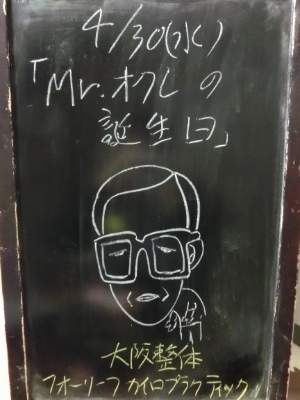 4/30(水)
「Mr.オクレの
誕生日」
大阪整体
フォーリーフ カイロプラクティック